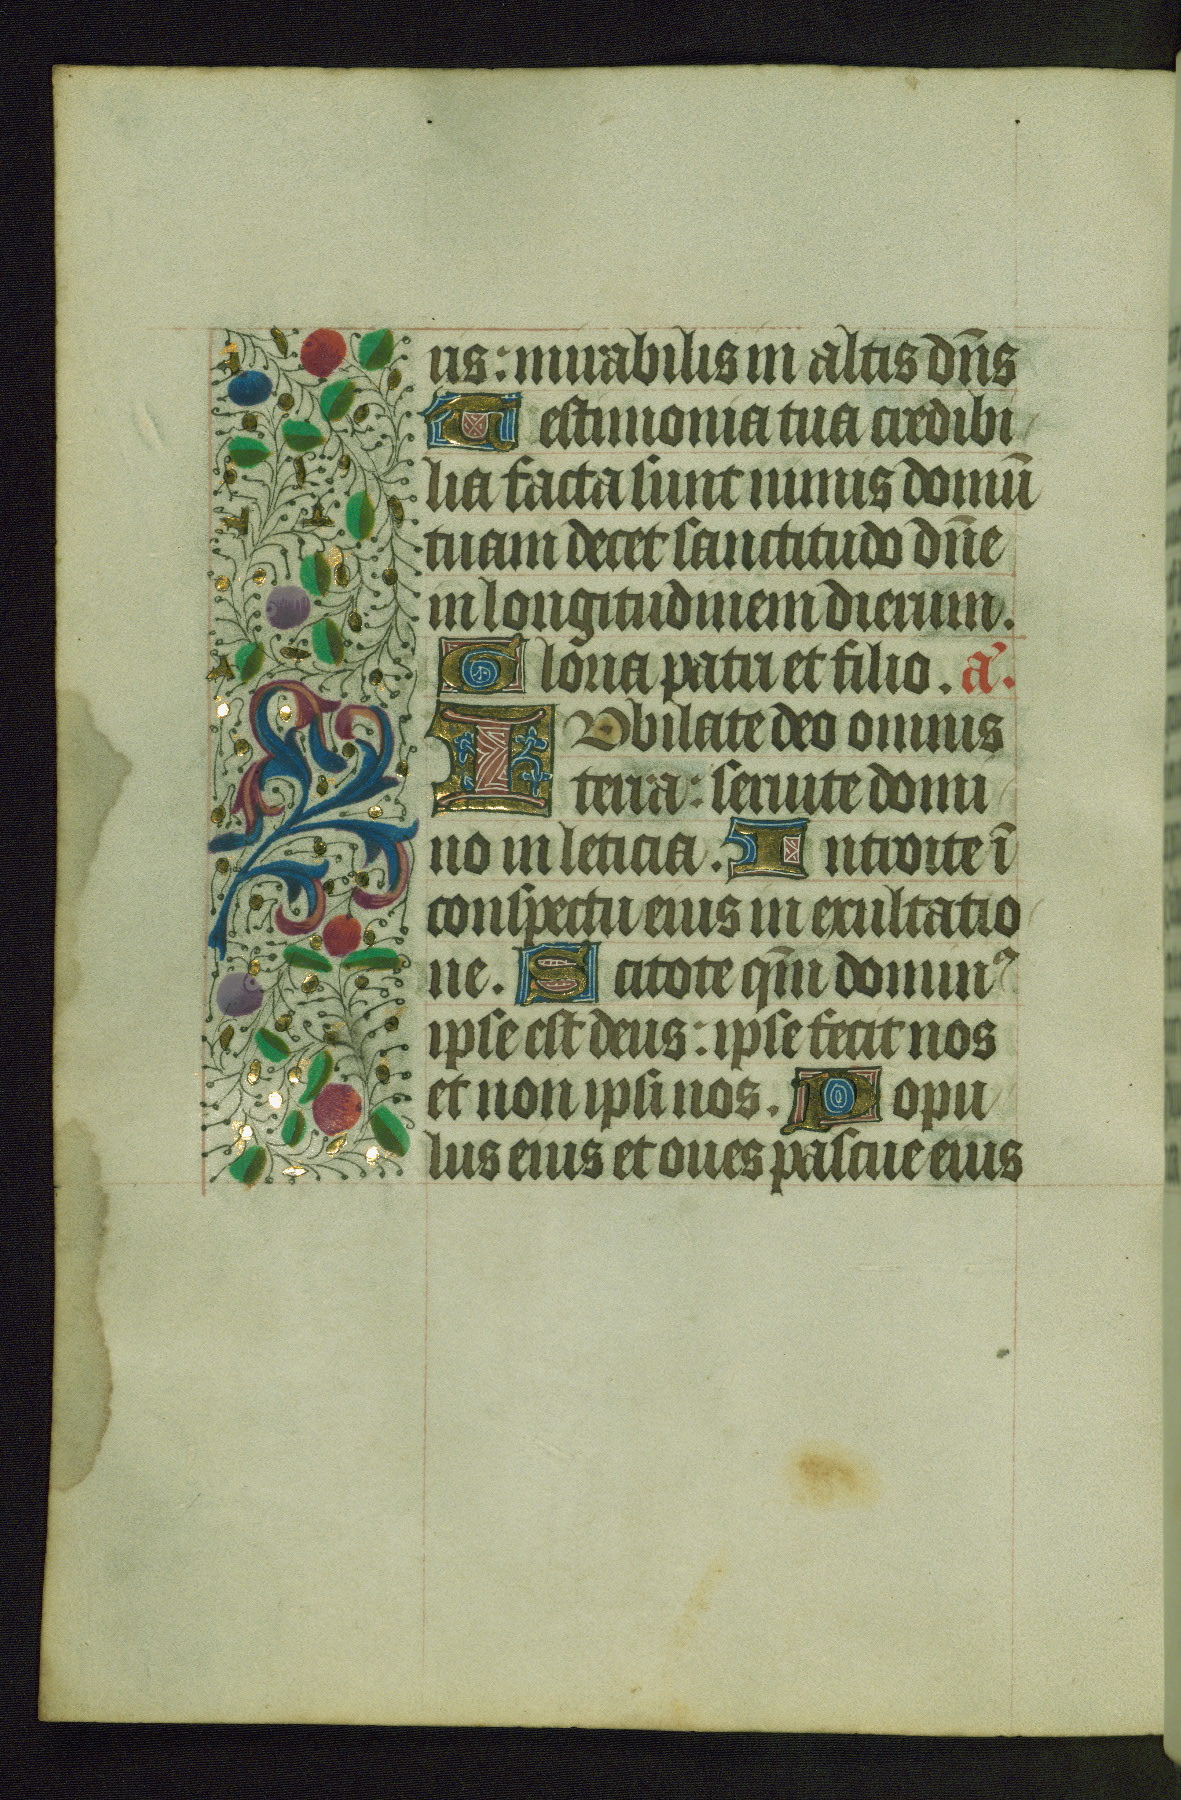 ris: mirabilis in altis dn̄s
Testimonia tua credibi
lia facta sunt nimis domū
tuam decet sanctitudo dn̄e
in longitudinem dierum.
Gloria patri et filio. a᷒.
IUbilate deo omnis
terra: seruite domi
no in leticia. Introite ī
conspectu eius in exultatio
ne. Scitote qm̄ dominꝰ
ipse est deus: ipse fecit nos
et non ipsi nos. Popu
lus eius et oues pascue eius